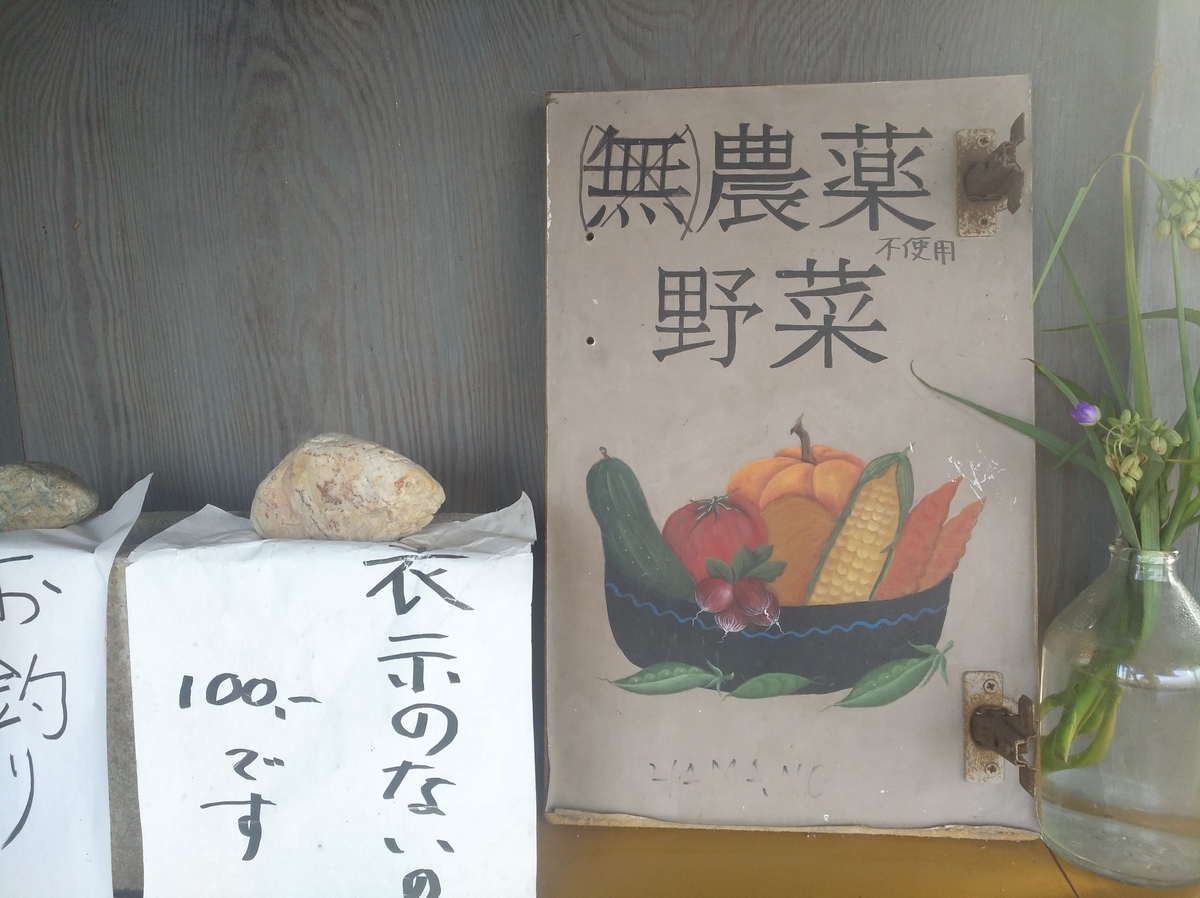 (無)農薬
不使用
野菜
HAMANO
表示のないの
100.-
です
お釣り